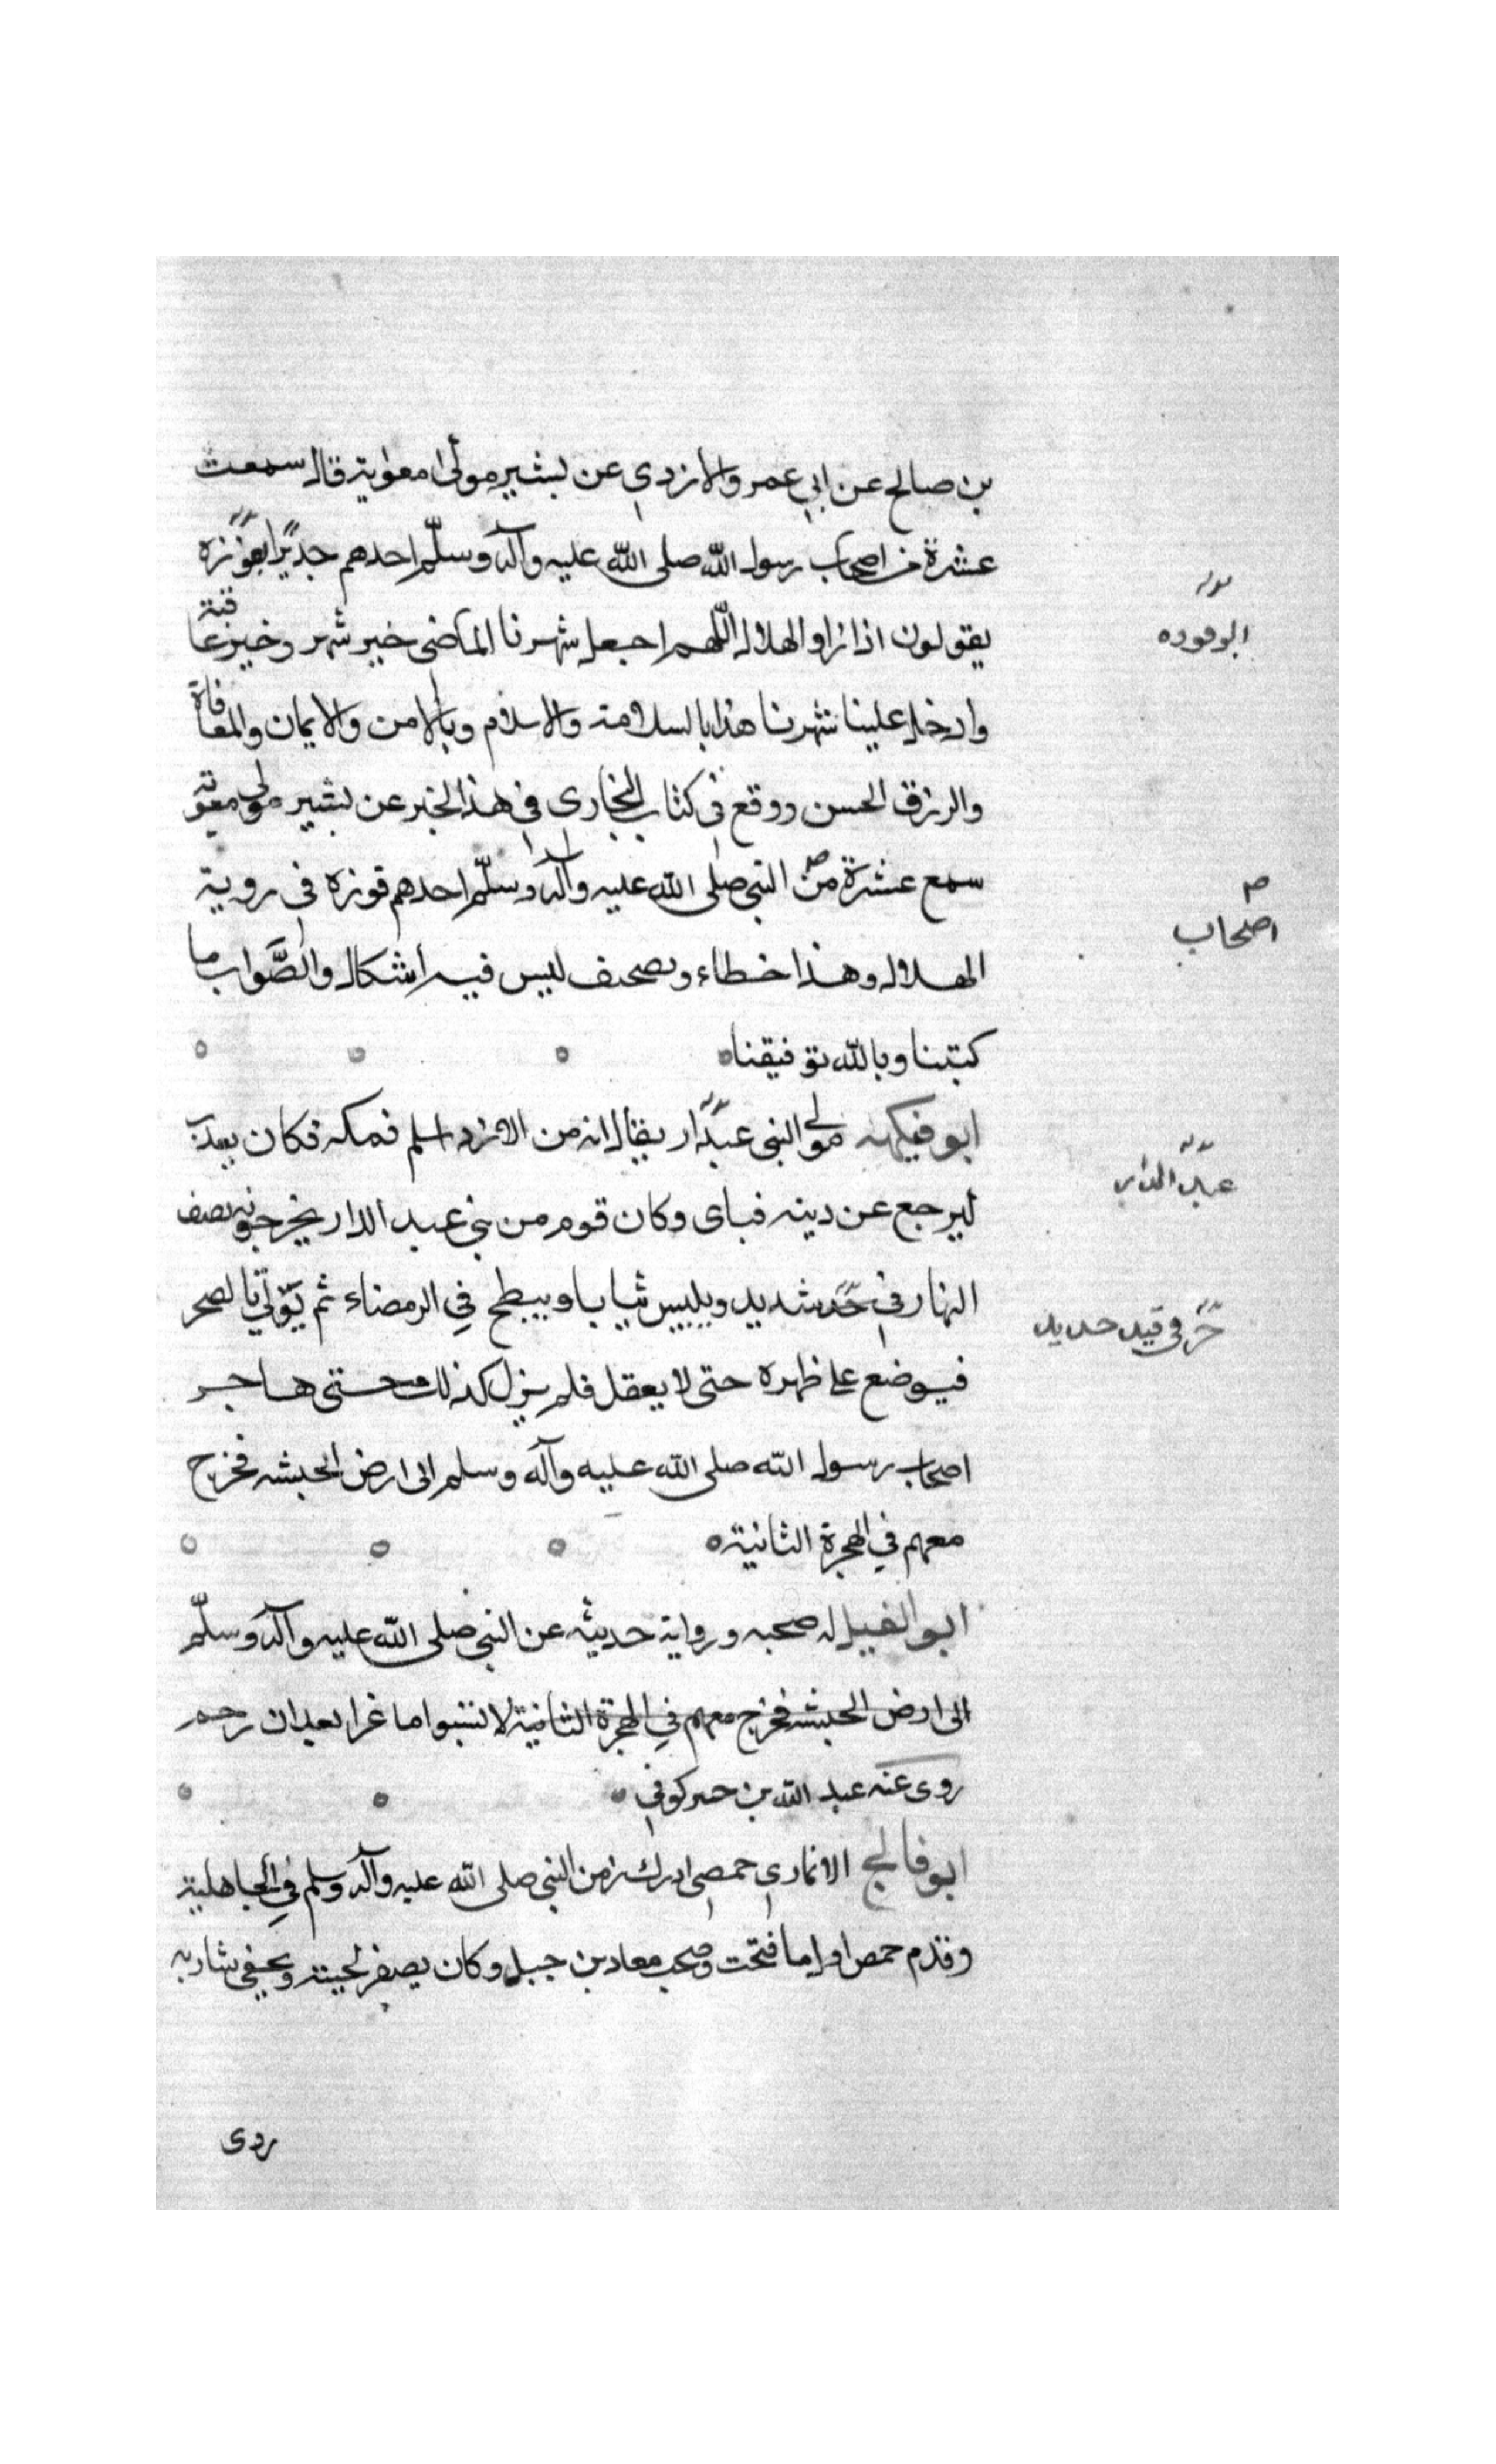 بن صالح عن ابي عمرو الازدي عن بشير مولى معوية قال سمعت
عشرة من اصحاب رسول الله صلى الله عليه وآله وسلّم احدهم جديرًا
يقولون اذا راو الهلال اللّهم اجعل شهرنا الماضى خير شهر وخير عاقبة
وادخل علينا شهرنا هذا بالسلامة والاسلام وبالامن والايمان والمعافاة
والرزق الحسن ووقع في كتاب البخارى في هذا الخبر عن بشير مولى معوية
سمع عشرة من النبي صلى الله عليه وآله وسلّم احدهم فوزه في روية
الهلال وهذا خطاء وصحيف ليس فيه اشكال والصَّواب ما
كتبنا وبالله توفيقنا
ابو فيكهه مولى النبى عبدار يقال انه من الازد اسلم فمكه فكان يعذب
ليرجع عن دينه فباى وكان قوم من بني عبد الدار يخرجونه نصف
النهار في حَرّ شديد ويلبيس ثيابا ويبطح في الرمضاء ثم يؤتي بالصخر
فيوضع على ظهره حتى لا يعقل فلم يزل كذلك حتى هاجر
اصحاب رسول الله صلى الله عليه وآله وسلم الى ارض الحبشه فخرج
معهم في الهجرة الثانية
ابو الفيل له صحبه ورواية حديثه عن النبي صلى الله عليه وآله وسلّم
الى ارض الحبشه فخرج معهم في الهجرة الثانية لا تسبوا ماعزا بعد ان رجم
روى عنه عبد الله بن جبير كوفي
ابو فالج الانمارى حمصى ادرك زمن النبي صلى الله عليه وآله وسلم في الجاهلية
وقدم حمص اول ما فتحت وصحب معاد بن جبل وكان يصفر لحيته ويحفي شاربه
روى
ابو فوده
اصحاب
عبد الدار
حرّ في قيد حديد